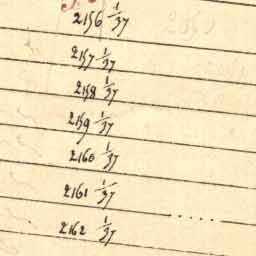 2156 1/37
2157 1/37
2158 1/37
2159 1/37
2160 1/37
2161 1/37
2162 1/37